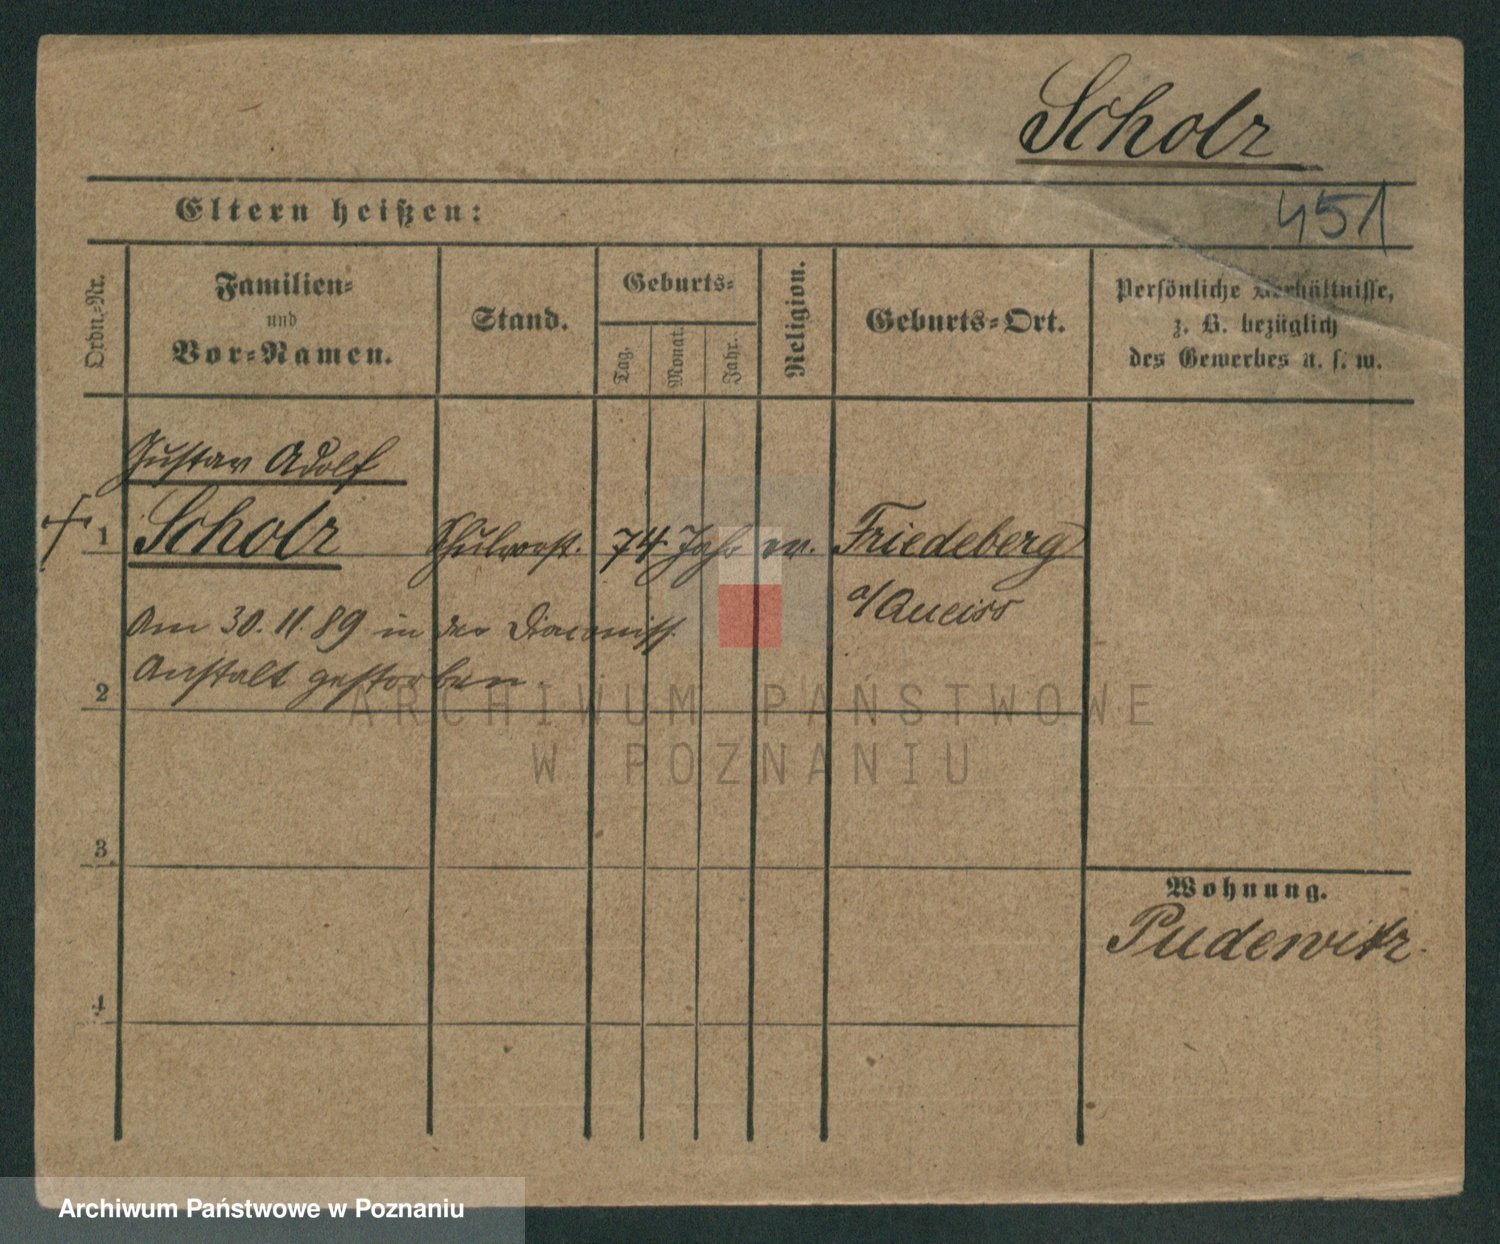 Scholz
451
Eltern heißen:
Ordn.-Nr.
Familien-
und
Vor-Namen.
Stand.
Geburts-
Tag.
Monat.
Jahr.
Religion.
Geburts-Ort.
Persönliche Verhältnisse,
z. B. bezüglich
des Gewerbes u. s. w.
Gustav Adolf
1 Scholz Schulvorst. 74 Jahr ev. Friedeberg
a/Queiss
Am 30.11.89 in der Diaconiss.
2 Anstalt gestorben.
ARCHIWUM PAŃSTWOWE
W POZNANIU
3
Wohnung.
Pudewitz.
4
Archiwum Państwowe w Poznaniu